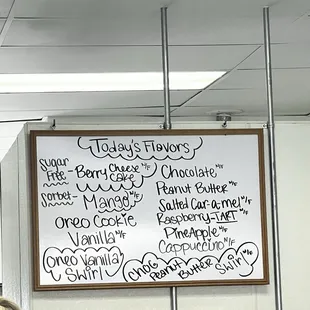 Today's Flavors
Sugar Free - Berry Cheese Cake
Sorbet - Mango N/F
Oreo Cookie
Vanilla N/F
Oreo Vanilla Swirl
Chocolate N/F
Peanut Butter N/F
Salted Car-a-mel N/F
Raspberry-TART N/F
PineApple N/F
Cappuccino N/F
Choc Peanut Butter Swirl N/F